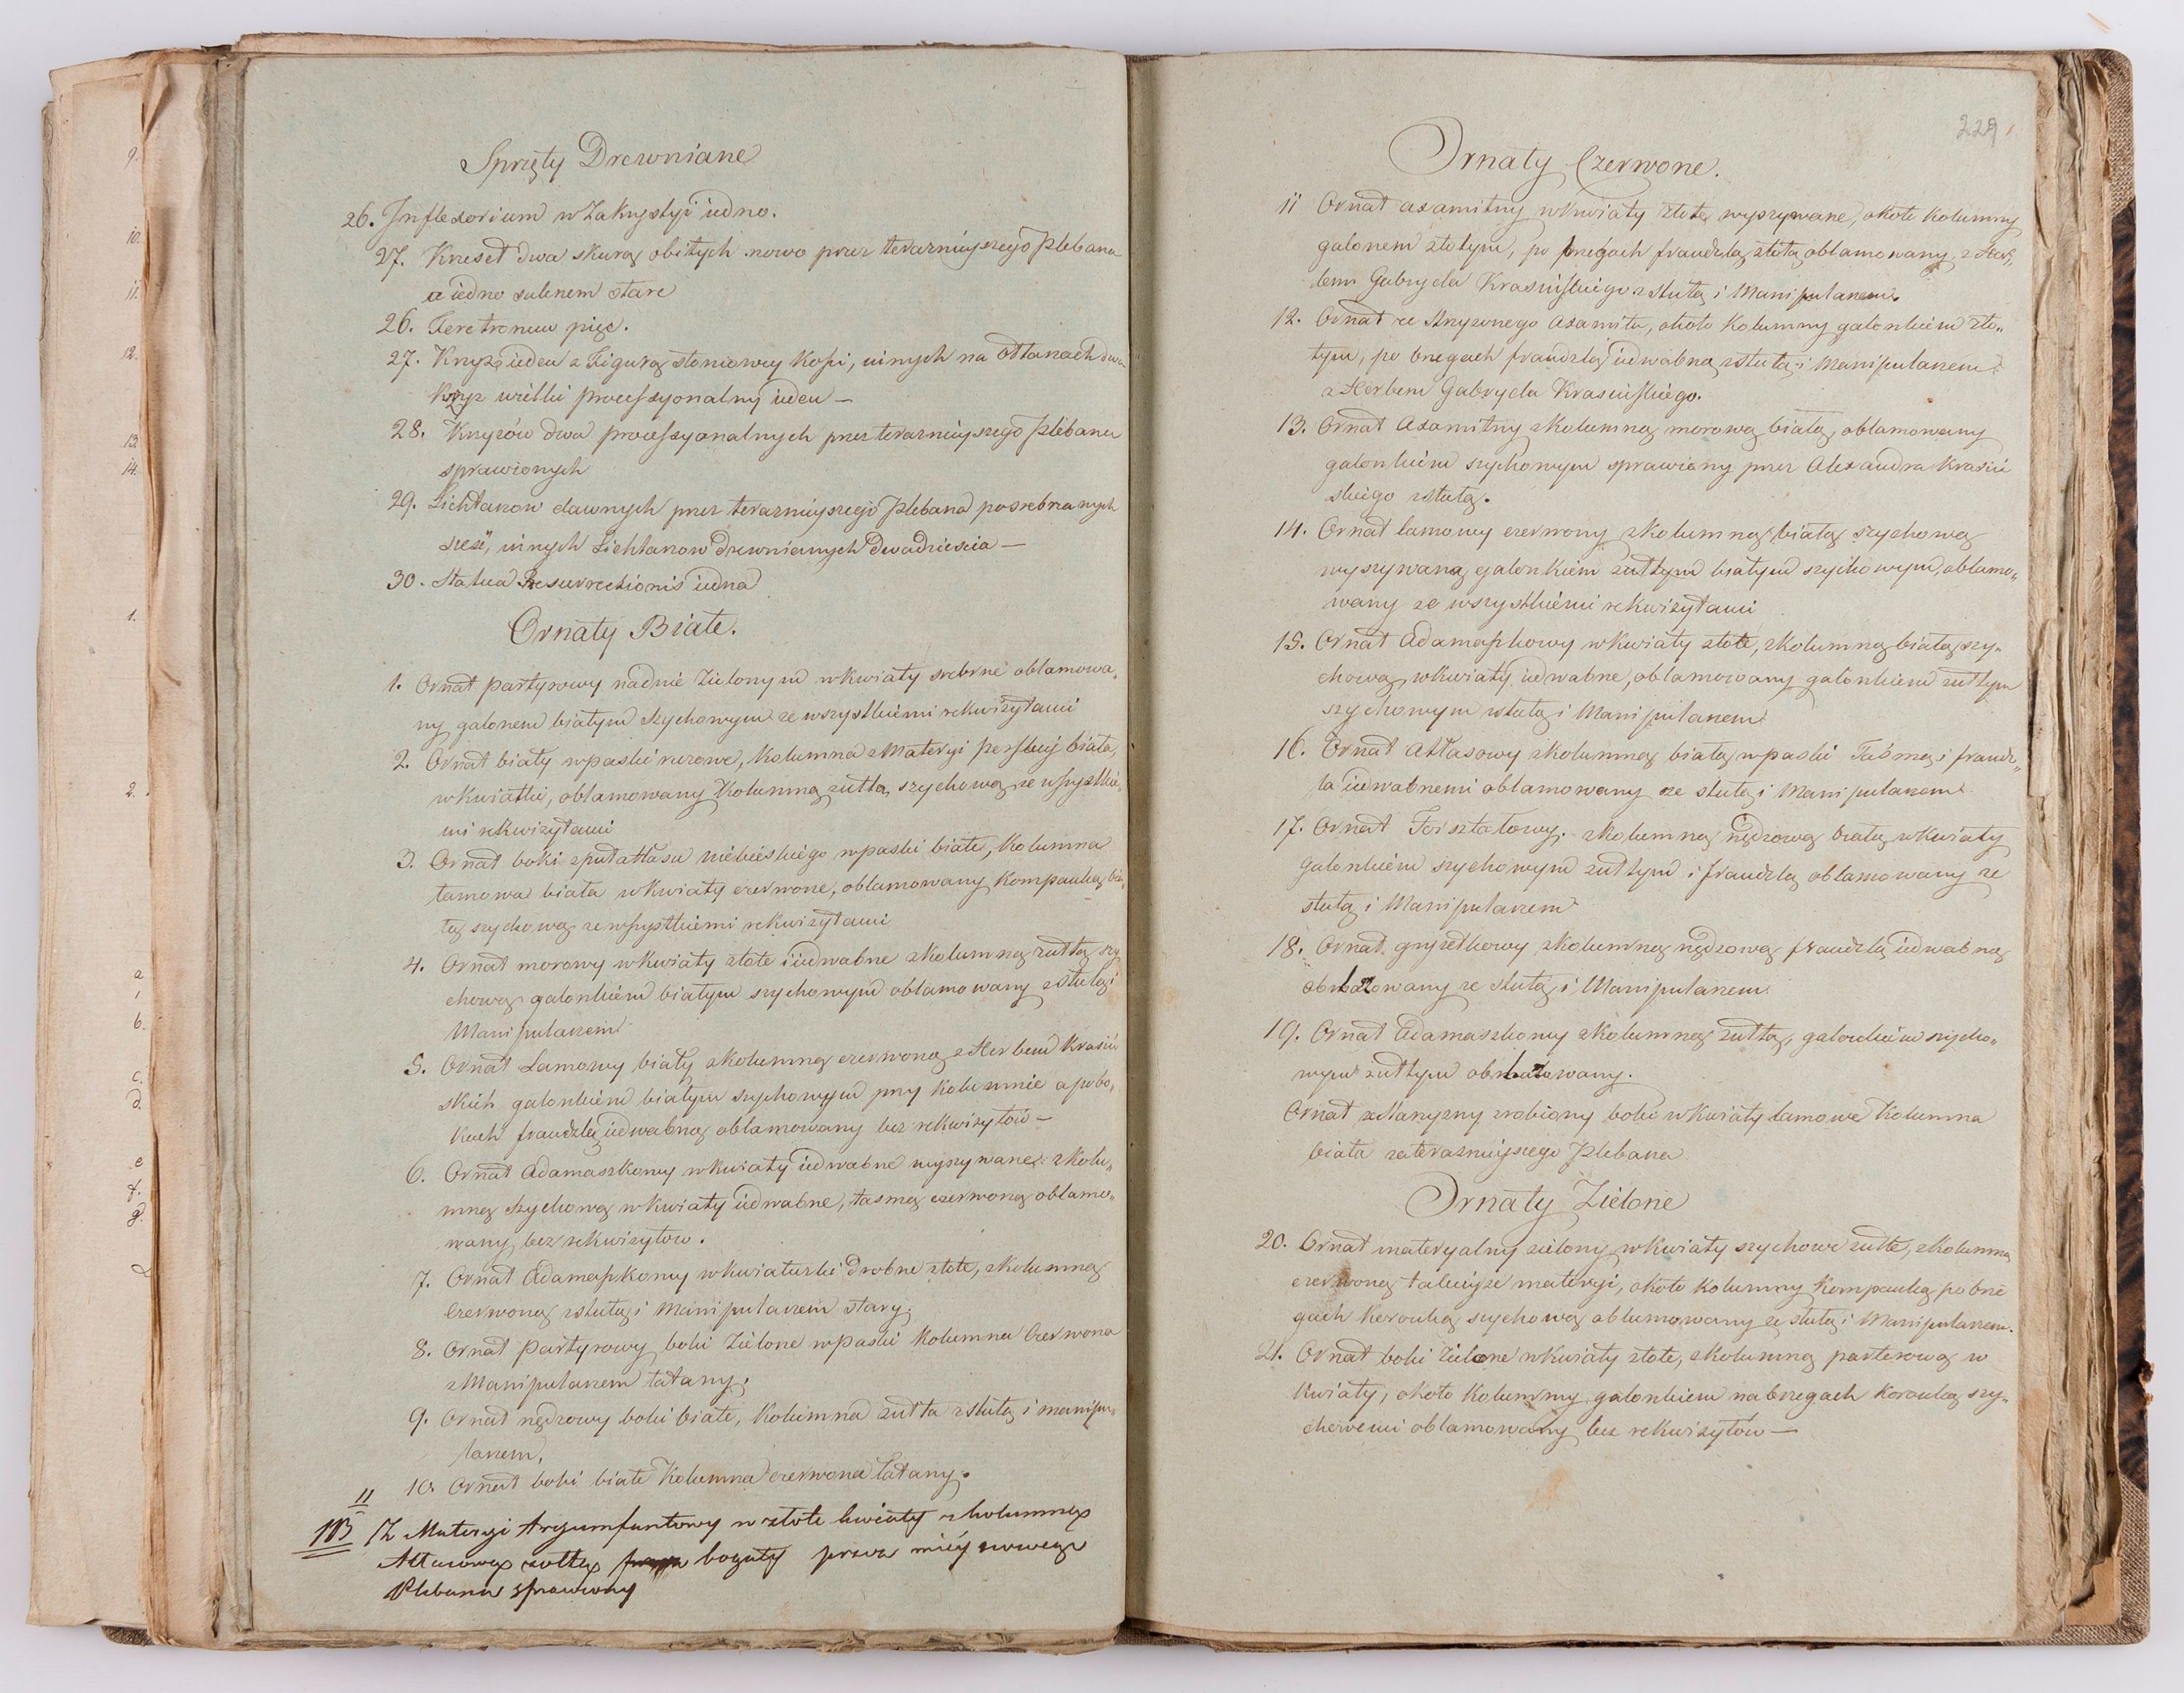 Sprzęty Drewniane
26. Inflexorium w Zakrystyi iedno.
27. Krzeseł dwa skurą obitych nowo przez teraznieyszego Plebana
a iedno suknem stare
26. Feretronów pięć.
27. Krzyż ieden z Figurą słoniowey Kości, innych na Ołtarzach dwa
Krzyż wielki processyonalny ieden —
28. Krzyzów dwa processyonalnych przez teraznieyszego Plebana
sprawionych
29. Lichtarzow dawnych przez teraznieyszego Plebana posrebrzanych
sześć, innych Lichtarzow drewnianych Dwadzieścia —
30. Statua Resurrectionis iedna
Ornaty Białe.
1. Ornat partyrowy na dnie Zielonym w kwiaty srebrne oblamowa„
ny galonem białym szychowym ze wszystkiemi rekwizytami
2. Ornat biały w paski rurowe, Kolumna z Materyi perskiej biała,
w kwiatki, oblamowany Kolumną zułtą, szychową ze wszystkie„
mi rekwizytami
3. Ornat boki z pułatłasu niebieskiego w paski białe, Kolumna
lamowa biała w kwiaty czerwone, oblamowany Kompanką bia„
łą szychową ze wszystkiemi rekwizytami
4. Ornat morowy w kwiaty złote i iedwabne z Kolumną zułtą szy
chową galonkiem białym szychowym oblamowany z Stułą i
Manipularzem
5. Ornat Lamowy biały z kolumną czerwoną z Herbem Krasiń
skich galonkiem białym szychowym przy Kolumnie a po bo„
kach frandzlą iedwabną oblamowany bez rekwizytów —
6. Ornat Adamaszkowy w kwiaty iedwabne wyszywane z kolu„
mną szychową w kwiaty iedwabne, tasmą czerwoną oblamo„
wany bez rekwizytow.
7. Ornat Adamaszkowy w kwiaturki drobne złote, z kolumną
Czerwoną z stułą i Manipularzem stary.
8. Ornat partyrowy boki Zielone w paski Kolumna Czerwona
z Manipularzem łatany.
9. Ornat nędzowy boki białe, Kolumna zułta z stułą i manipu„
larzem,
10. Ornat boki białe Kolumna czerwona łatany.
11
Z Materyi Argumfantowy w złote kwiaty z kolumną
Atłasową zołtą bogaty przez miey nowego
Plebana sprawiony
229
Ornaty Czerwone.
11 Ornat axamitny w kwiaty złote wyszywane, około kolumny
galonem złotym, po brzegach frandzlą złotą oblamowany, z Her„
bem Gabryela Krasińskiego z stułą i Manipularzem.
12. Ornat ze strzyzonego Axamitu, około Kolumny galonkiem zło„
tym, po brzegach frandzlą iedwabną z stułą i Manipularzem
z Herbem Gabryela Krasińskiego.
13. Ornat Axamitny z kolumną morową białą, oblamowany
galonkiem szychowym sprawiony przez Alexandra Krasiń
skiego z stułą.
14. Ornat lamowy czerwony z kolumną białą szychową
wyszywaną galonkiem zułtym białym szychowym, oblamo„
wany ze wszystkiemi rekwizytami
15. Ornat Adamaszkowy w kwiaty złote, z kolumną białą szy„
chową w kwiaty iedwabne, oblamowany galonkiem zułtym
szychowym z stułą i Manipularzem
16. Ornat Atłasowy z kolumną białą w paski Taśmą i frandz„
la iedwabnemi oblamowany ze stułą i Manipularzem
17. Ornat z kolumną nędzową białą w kwiaty
Galonkiem szychowym zułtym i frandzlą oblamowany ze
stułą i Manipularzem
18. Ornat gryzetkowy z kolumną nędzową frandzlą iedwabną
ze stułą i Manipularzem
19. Ornat Adamaszkowy z kolumną zułtą, galonkiem szycho„
wym zułtym
Ornat zrobiony boki w kwiaty lamowe Kolumna
biała za teraznieyszego Plebana
Ornaty Zielone
20. Ornat materyalny zielony w kwiaty szychowe zułte, z kolumną
czerwoną takieyże materyi, około kolumny Kompanką po brze
gach Koronką szychową oblamowany ze stułą i Manipularzem.
21. Ornat boki Zielone w kwiaty złote, z kolumną parterową w
kwiaty, około Kolumny galonkiem na brzegach Koronką szy„
chowemi oblamowany bez rekwizytów —